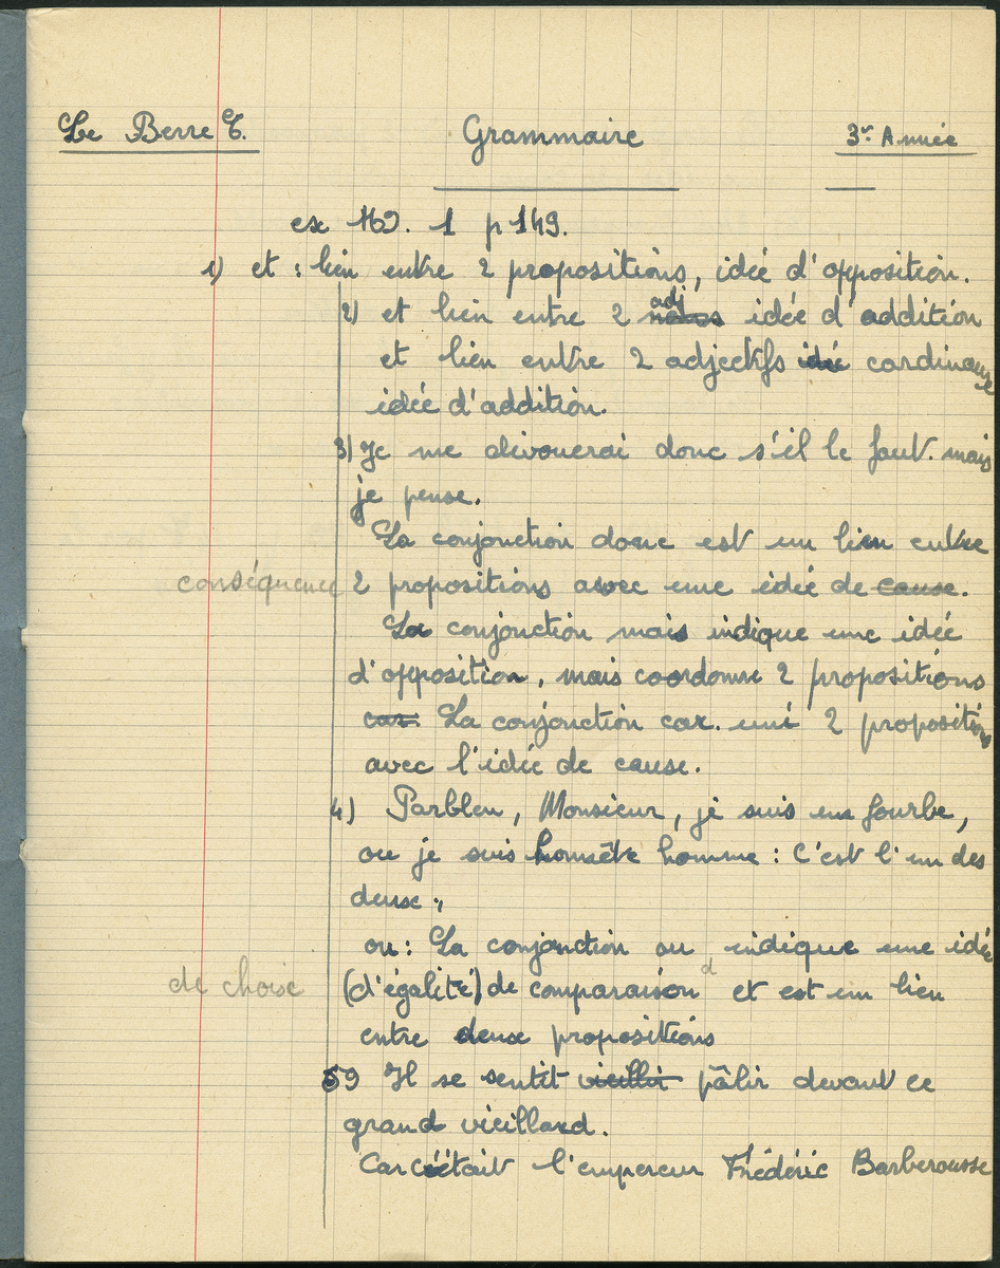 Le Berre C. Grammaire 3e Année
ex 162. 1 p 149.
1) et : lien entre 2 propositions, idée d'opposition.
adj
2) et lien entre 2 idée d'addition
et lien entre 2 adjectifs idée cardinaux
idée d'addition.
3) Je me dévouerai donc s'il le faut. mais
je pense.
La conjonction donc est un lien entre
conséquence 2 propositions avec une idée de cause.
La conjonction mais indique une idée
d'opposition, mais coordonne 2 propositions
car. La conjonction car. uni 2 propositions
avec l'idée de cause.
4) Parbleu, Monsieur, je suis un fourbe,
ou je suis honnête homme : C'est l'un des
deux.
ou : La conjonction ou indique une idée
de choix (d'égalité) de comparaison d et est un lien
entre deux propositions
5) Il se sentit vieillir pâlir devant ce
grand vieillard.
Car c'était l'empereur Frédéric Barberousse